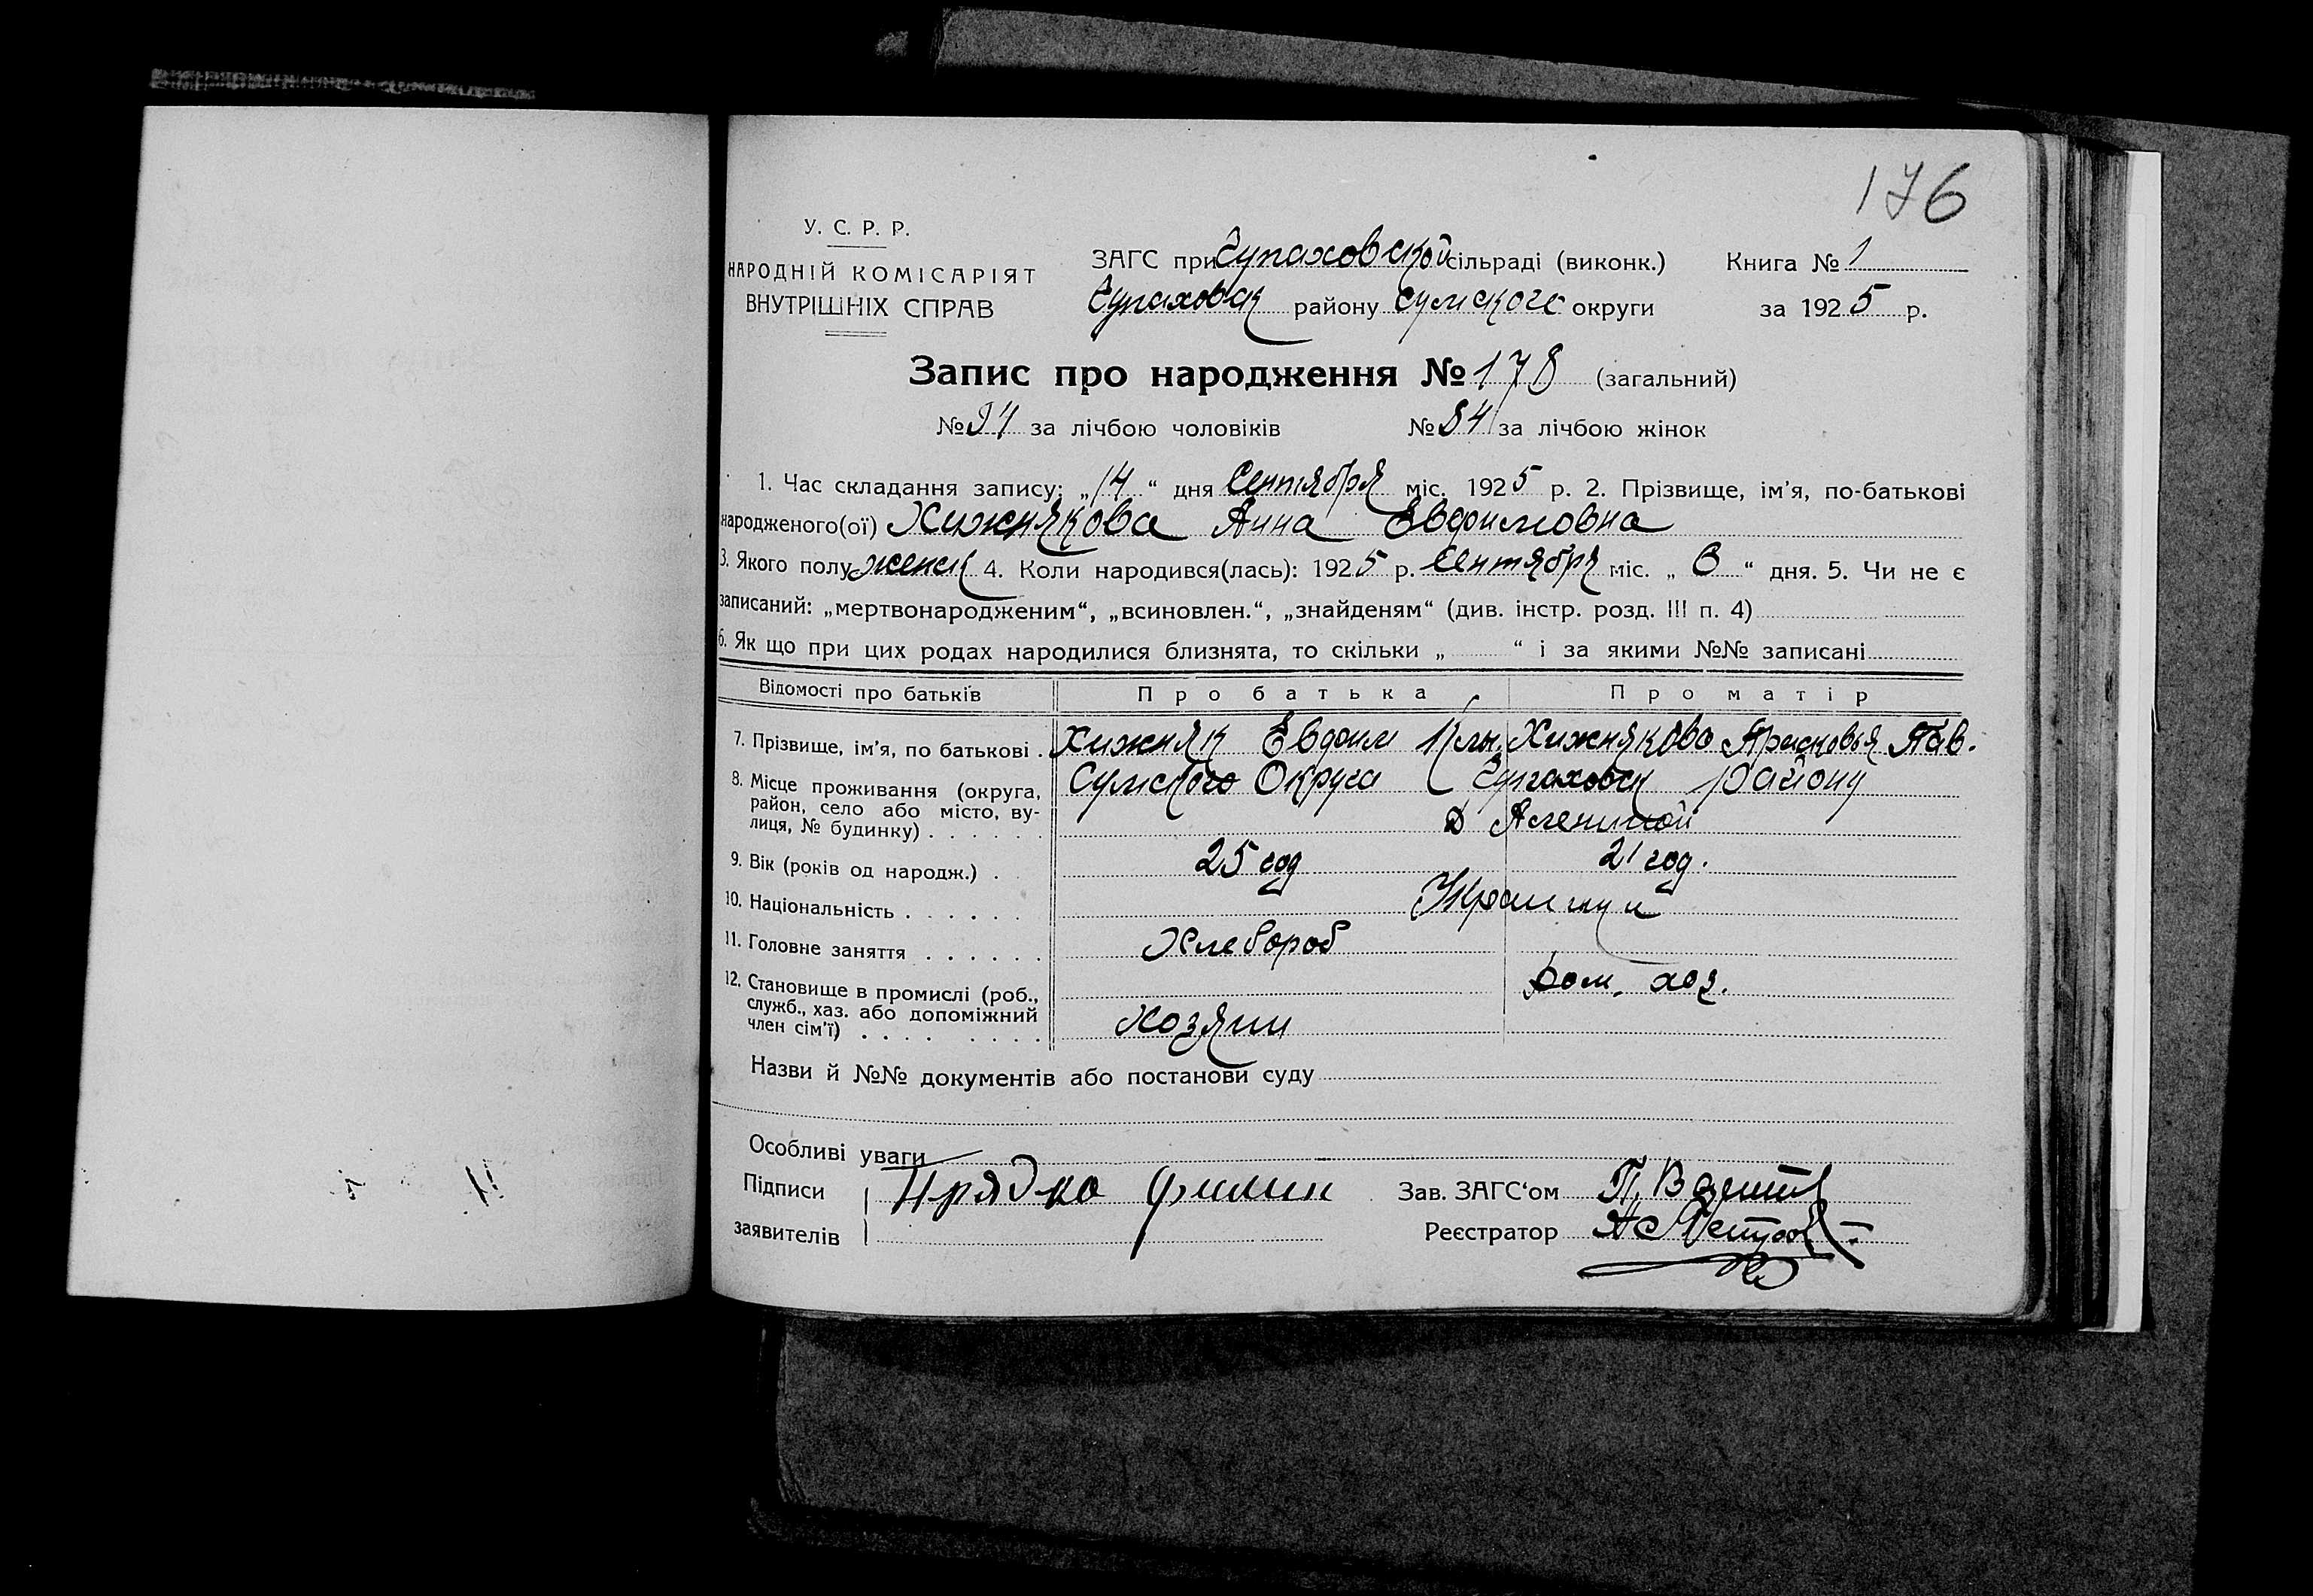 176
У. С. Р. Р.
НАРОДНІЙ КОМІСАРІЯТ
ВНУТРІШНІХ СПРАВ
ЗАГС при Чупаховской сільраді (виконк.) Книга № 1
Чупаховск району Сумского округи за 1925 р.
Запис про народження № 178 (загальний)
№ 94 за лічбою чоловіків № 84 за лічбою жінок
1. Час складання запису: „14“ дня Сентября міс. 1925 р. 2. Прізвище, ім’я, по-батькові
народженого(ої) Хижнякова Анна Евдоимовна
3. Якого полу женск 4. Коли народився(лась): 1925 р. Сентября міс. „ 6 “ дня. 5. Чи не є
записаний: „мертвонародженим“, „всиновлен.“, „знайденям“ (див. інстр. розд. III п. 4)
6. Як що при цих родах народилися близнята, то скільки „ “ і за якими №№ записані
Відомості про батьків Про батька Про матір
7. Прізвище, ім’я, по батькові . Хижняк Евдоим Хижнякова Прасковья Пав.
8. Місце проживання (округа, район, село або місто, вулиця, № будинку) . . . . . . Сумского Округа Чупаховск району
9. Вік (років од народж.) . 25 год 21 год.
10. Національність . . . . . .
11. Головне заняття . . . . . . Хлебороб
12. Становище в промислі (роб., служб., хаз. або допоміжний член сім’ї) . . . . . . . . Хозяин Дом. хоз.
Назви й №№ документів або постанови суду
Особливі уваги
Підписи Прядко Зав. ЗАГС‘ом
заявителів Реєстратор